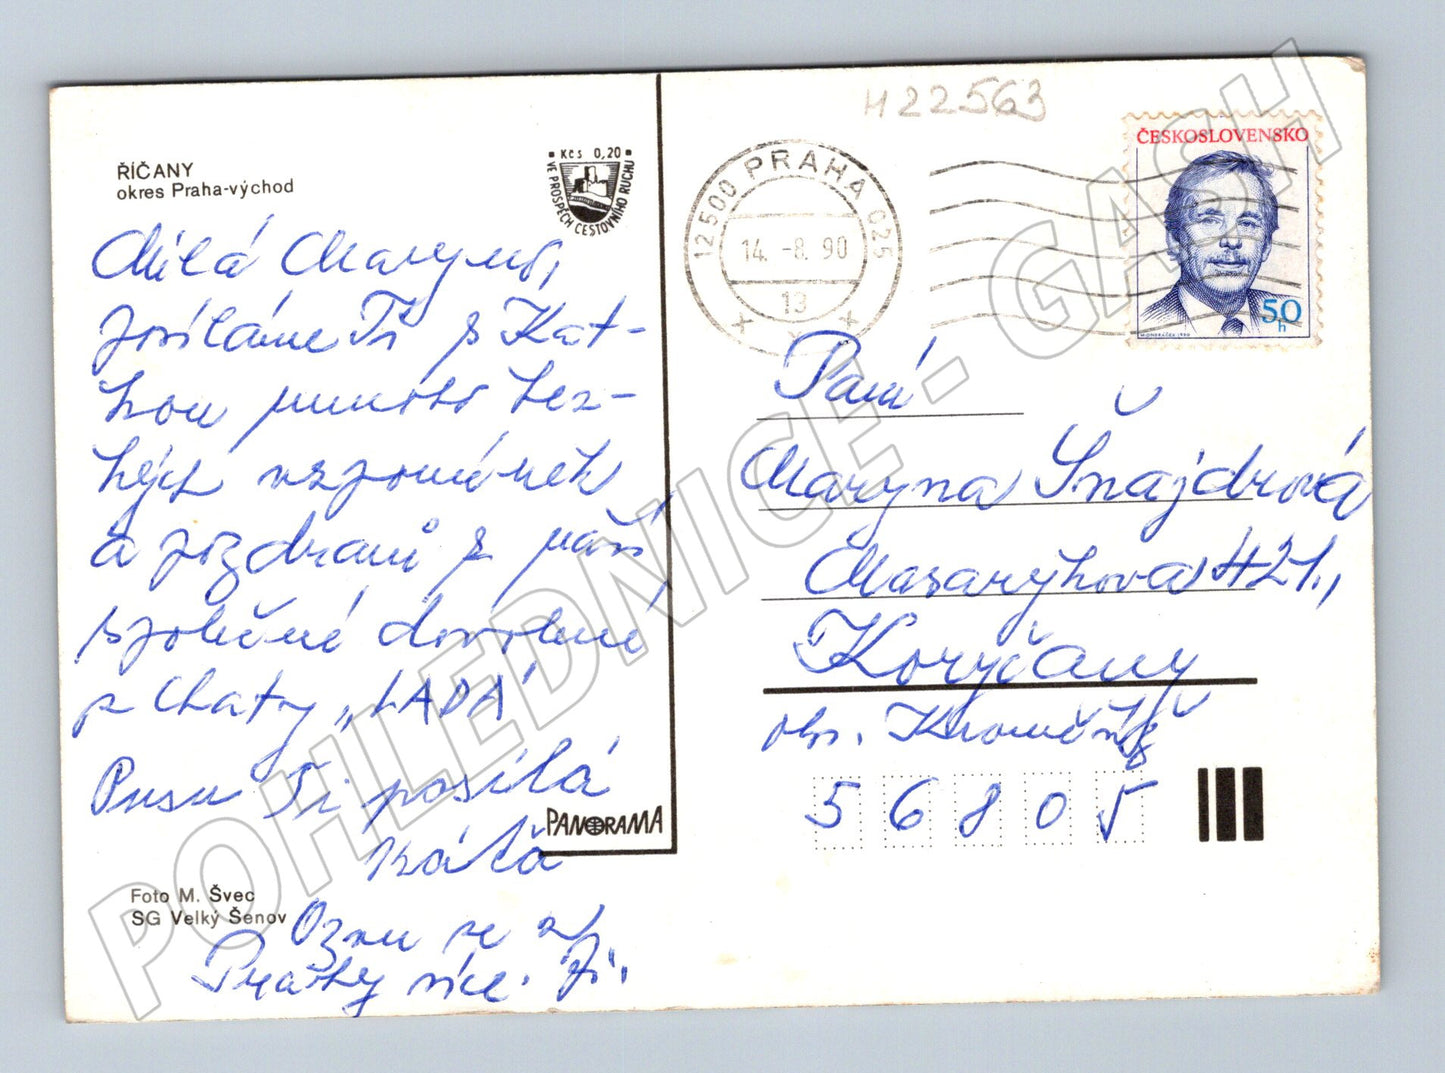 H22563
ŘÍČANY
okres Praha-východ
Kčs 0,20
VE PROSPĚCH CESTOVNÍHO RUCHU
12500 PRAHA 025
14. -8. 90
13
ČESKOSLOVENSKO
50
h
Milá Maryno,
posíláme Ti s Kat-
kou mnoho hez-
kých vzpomínek
a pozdravů z naší
společné dovolené
z chaty „LADA"
Pusu Ti posílá
Káťa
Ozvu se z
Prahy více. Ji.
Paní
Maryna Šnajdrová
Masarykova 421.,
Koryčany
okr. Kroměříž
56805
PANORAMA
Foto M. Švec
SG Velký Šenov
POHLEDNICE - GASH